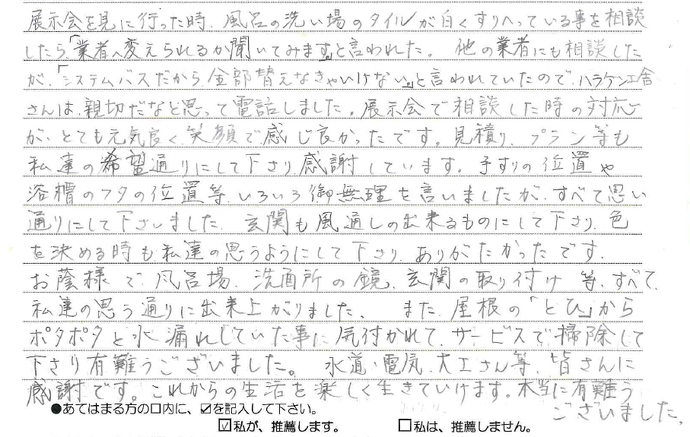 展示会を見に行った時、風呂の洗い場のタイルが白くすりへっている事を相談
したら「業者へ変えられるか聞いてみます」と言われた。他の業者にも相談した
が、「システムバスだから全部替えなきゃいけない」と言われていたので、ハラケン工舎
さんは、親切だなと思って電話しました。展示会で相談した時の対応
が、とても元気良く笑顔で感じ良かったです。見積り、プラン等も
私達の希望通りにして下さり、感謝しています。手すりの位置や
浴槽のフタの位置等、いろいろ御無理を言いましたが、すべて思い
通りにして下さいました。玄関も風通しの出来るものにして下さり、色
を決める時も私達の思うようにして下さり、ありがたかったです。
お蔭様で風呂場、洗面所の鏡、玄関の取り付け等、すべて、
私達の思う通りに出来上がりました。また、屋根の「とひ」から
ポタポタと水漏れしていた事に気付かれて、サービスで掃除して
下さり有難うございました。水道・電気、大工さん等、皆さんに
感謝です。これからの生活を楽しく生きていけます。本当に有難う
ございました。
●あてはまる方の口内に、☑を記入して下さい。
☑私が、推薦します。 □私は、推薦しません。